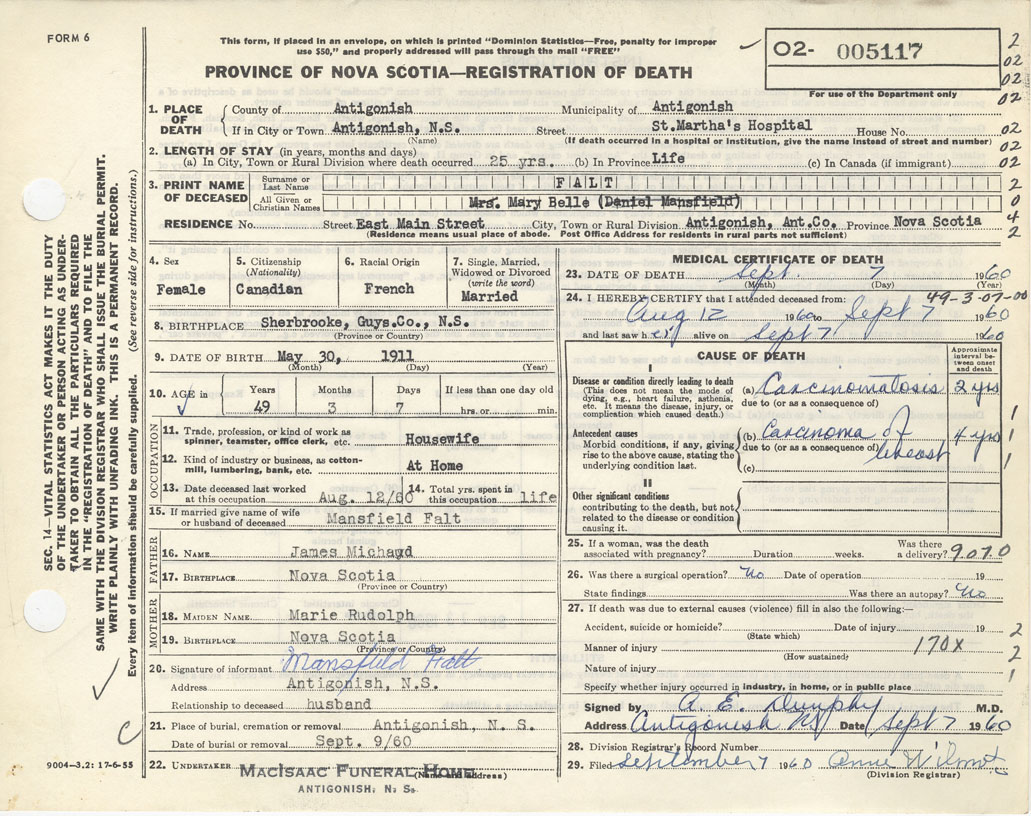 FORM 6
This form, if placed in an envelope, on which is printed "Dominion Statistics—Free, penalty for improper
use $50," and properly addressed will pass through the mail "FREE"
02- 005117
For use of the Department only
PROVINCE OF NOVA SCOTIA—REGISTRATION OF DEATH
1. PLACE OF DEATH
County of Antigonish Municipality of Antigonish
If in City or Town Antigonish, N.S. Street St.Martha's Hospital House No.
(Name) (If death occurred in a hospital or institution, give the name instead of street and number)
2. LENGTH OF STAY (in years, months and days)
(a) In City, Town or Rural Division where death occurred 25 yrs. (b) In Province Life (c) In Canada (if immigrant)
3. PRINT NAME OF DECEASED
Surname or Last Name FALT
All Given or Christian Names Mrs. Mary Belle (Daniel Mansfield)
RESIDENCE No. Street East Main Street City, Town or Rural Division Antigonish, Ant.Co. Province Nova Scotia
(Residence means usual place of abode. Post Office Address for residents in rural parts not sufficient)
4. Sex
Female
5. Citizenship
(Nationality)
Canadian
6. Racial Origin
French
7. Single, Married, Widowed or Divorced
(write the word)
Married
8. BIRTHPLACE Sherbrooke, Guys.Co., N.S.
(Province or Country)
9. DATE OF BIRTH May 30, 1911
(Month) (Day) (Year)
10. AGE in Years Months Days If less than one day old
49 3 7 hrs. or min.
OCCUPATION
11. Trade, profession, or kind of work as
spinner, teamster, office clerk, etc. Housewife
12. Kind of industry or business, as cotton-
mill, lumbering, bank, etc. At Home
13. Date deceased last worked
at this occupation Aug. 12/60
14. Total yrs. spent in
this occupation life
15. If married give name of wife
or husband of deceased Mansfield Falt
FATHER
16. NAME James Michaud
17. BIRTHPLACE Nova Scotia
(Province or Country)
MOTHER
18. MAIDEN NAME Marie Rudolph
19. BIRTHPLACE Nova Scotia
(Province or Country)
20. Signature of informant Mansfield Falt
Address Antigonish, N.S.
Relationship to deceased husband
21. Place of burial, cremation or removal Antigonish, N. S.
Date of burial or removal Sept. 9/60
22. UNDERTAKER MACISAAC FUNERAL HOME
(Name and address)
ANTIGONISH, N. S.
MEDICAL CERTIFICATE OF DEATH
23. DATE OF DEATH Sept. 7 1960
(Month) (Day) (Year)
49-3-07-00
24. I HEREBY CERTIFY that I attended deceased from:
Aug 12 1960 to Sept 7 1960
and last saw her alive on Sept 7 1960
CAUSE OF DEATH
Approximate interval between onset and death
I
Disease or condition directly leading to death
(This does not mean the mode of
dying, e.g., heart failure, asthenia,
etc. It means the disease, injury, or
complication which caused death.)
(a) Carcinomatosis 2 yrs
due to (or as a consequence of)
Antecedent causes
Morbid conditions, if any, giving
rise to the above cause, stating the
underlying condition last.
(b) Carcinoma of breast 4 yrs
due to (or as a consequence of)
(c)
II
Other significant conditions
contributing to the death, but not
related to the disease or condition
causing it.
25. If a woman, was the death
associated with pregnancy? Duration weeks. Was there
a delivery? 9070
26. Was there a surgical operation? No Date of operation 19
State findings Was there an autopsy? No
27. If death was due to external causes (violence) fill in also the following:—
Accident, suicide or homicide? Date of injury 19
(State which)
Manner of injury 170X
(How sustained)
Nature of injury
Specify whether injury occurred in industry, in home, or in public place
Signed by A. E. Dunphy M.D.
Address Antigonish NS Date Sept 7 1960
28. Division Registrar's Record Number
29. Filed September 7 1960 Anne Wilmot
(Division Registrar)
SEC. 14—VITAL STATISTICS ACT MAKES IT THE DUTY
OF THE UNDERTAKER OR PERSON ACTING AS UNDER-
TAKER TO OBTAIN ALL THE PARTICULARS REQUIRED
IN THE "REGISTRATION OF DEATH" AND TO FILE THE
SAME WITH THE DIVISION REGISTRAR WHO SHALL ISSUE THE BURIAL PERMIT.
WRITE PLAINLY WITH UNFADING INK. THIS IS A PERMANENT RECORD.
Every item of information should be carefully supplied. (See reverse side for instructions.)
9004-3.2: 17-6-55
C
2
02
02
02
02
02
02
2
0
4
2
1
1
1
2
2
1